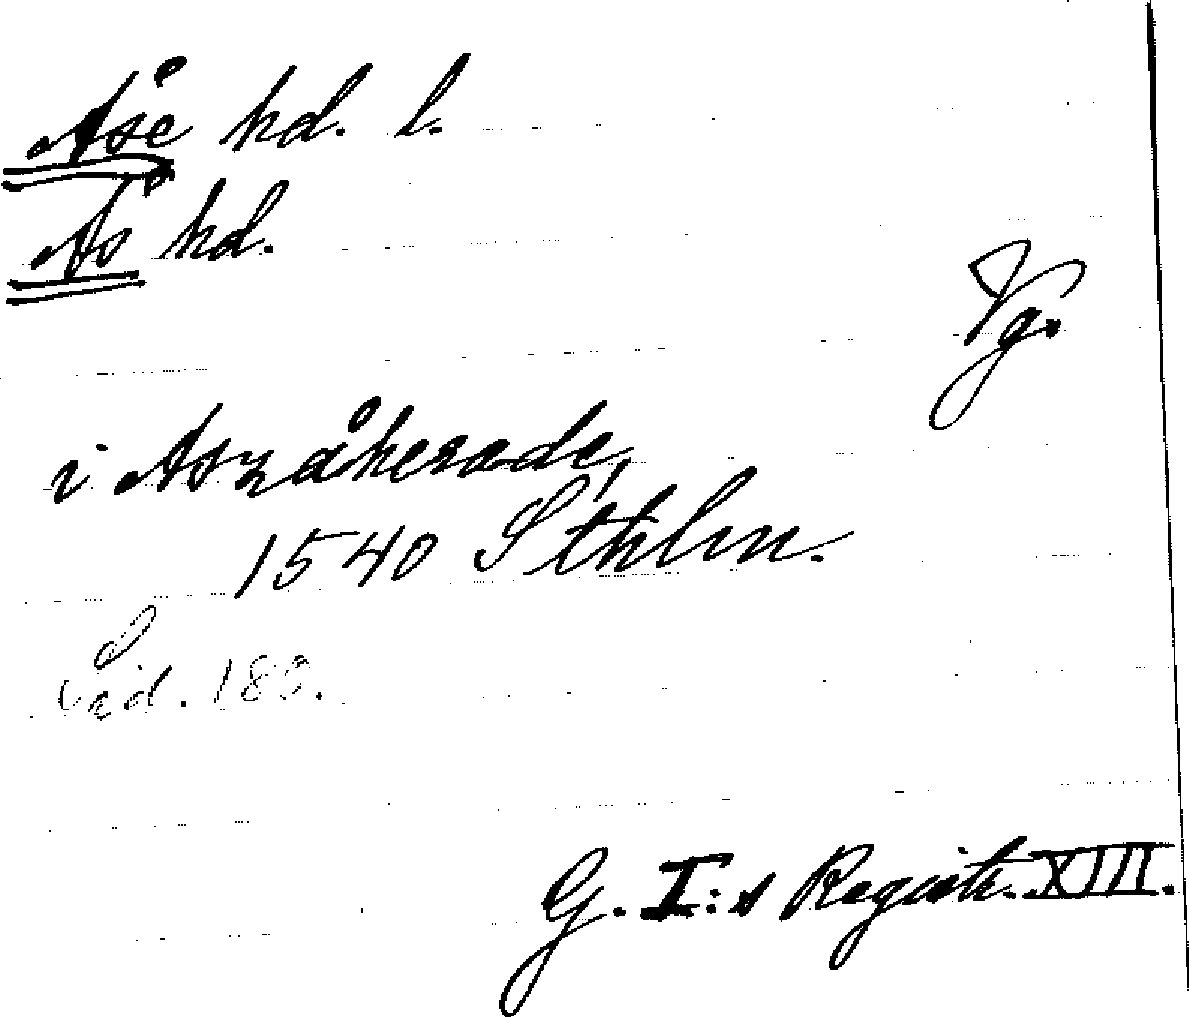 Åse hd. l.
Ås hd.
Vg.
i Aszåherade,
1540 Sthlm.
Sid. 180.
G. I:s Registr. XIII.